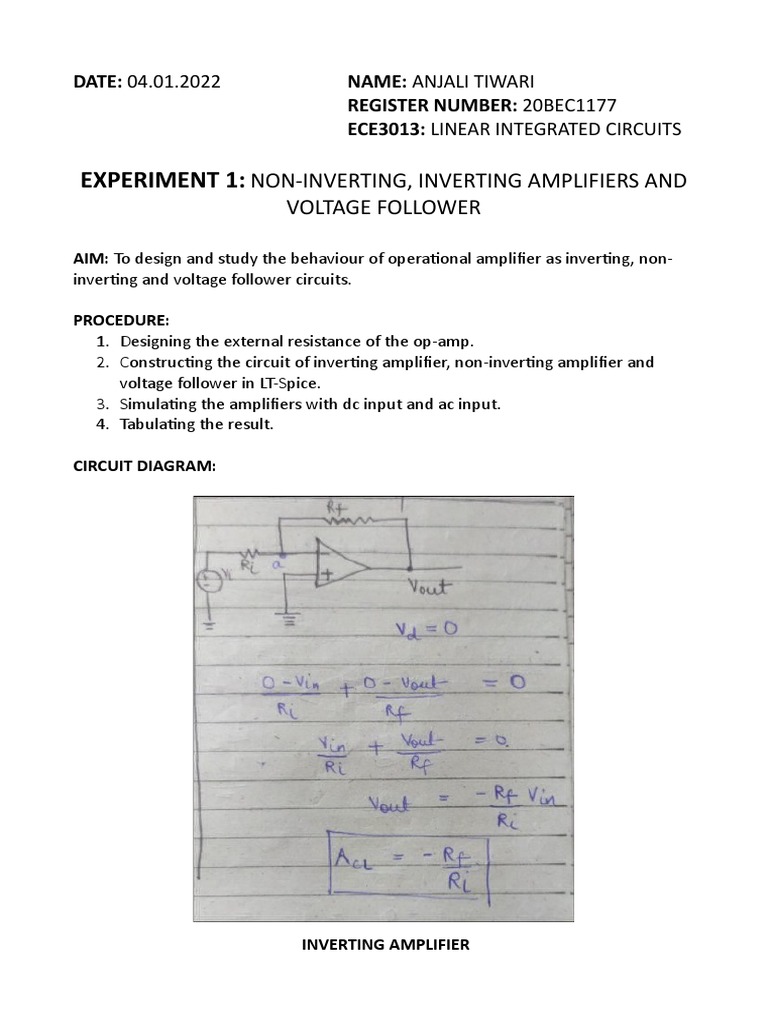 DATE: 04.01.2022 NAME: ANJALI TIWARI
REGISTER NUMBER: 20BEC1177
ECE3013: LINEAR INTEGRATED CIRCUITS
EXPERIMENT 1: NON-INVERTING, INVERTING AMPLIFIERS AND
VOLTAGE FOLLOWER
AIM: To design and study the behaviour of operational amplifier as inverting, non-
inverting and voltage follower circuits.
PROCEDURE:
1. Designing the external resistance of the op-amp.
2. Constructing the circuit of inverting amplifier, non-inverting amplifier and
voltage follower in LT-Spice.
3. Simulating the amplifiers with dc input and ac input.
4. Tabulating the result.
CIRCUIT DIAGRAM:
Rf
Ri a
Vi
- +
Vout
Vd = 0
0 - Vin / Ri + 0 - Vout / Rf = 0
Vin / Ri + Vout / Rf = 0.
Vout = - Rf Vin / Ri
ACL = - Rf / Ri
INVERTING AMPLIFIER